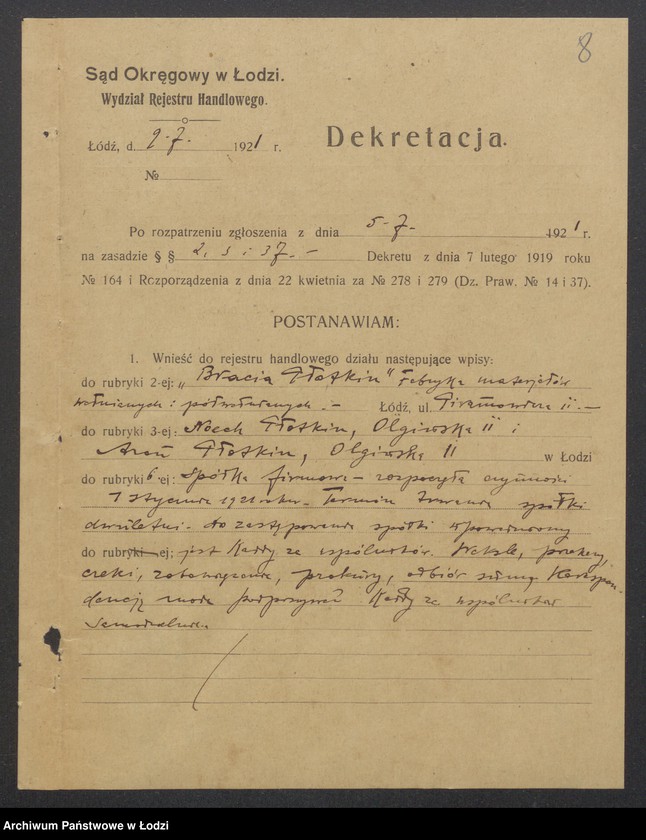 8
Sąd Okręgowy w Łodzi.
Wydział Rejestru Handlowego.
Łódź, d. 9-7. 1921 r.
№
Dekretacja.
Po rozpatrzeniu zgłoszenia z dnia 5-7- 1921 r.
na zasadzie § § 2, 3 i 37.- Dekretu z dnia 7 lutego 1919 roku
№ 164 i Rozporządzenia z dnia 22 kwietnia za № 278 i 279 (Dz. Praw. № 14 i 37).
POSTANAWIAM:
1. Wnieść do rejestru handlowego działu następujące wpisy:
do rubryki 2-ej: „Bracia Płotkin" Fabryka materjałów
wełnianych i półwełnianych. - Łódź, ul. Piramowicza 11. -
do rubryki 3-ej: Noech Płotkin, Olgińska 11 i
Aron Płotkin, Olgińska 11 w Łodzi
do rubryki 6-ej: Spółka firmowa - rozpoczęła czynności
1 stycznia 1921 roku. Termin trwania spółki
dwuletni. Do zastępowania spółki upoważniony
do rubryki -ej: jest każdy ze wspólników. Weksle, przekazy,
czeki, zobowiązania, prokury, odbiór sum, korespon-
dencję może podpisywać każdy ze wspólników
samodzielnie.
Archiwum Państwowe w Łodzi